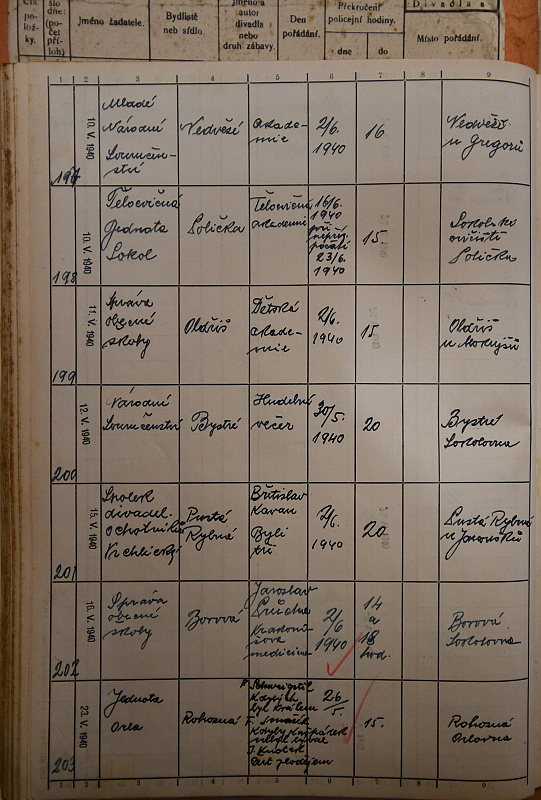 Čís.
polo-
žky.
slo
dne:
(počet
příloh)
Jméno žadatele.
Bydliště
neb sídlo.
Jméno a
autor
divadla
nebo
druh zábavy.
Den
pořádání.
Překročení
policejní hodiny.
dne
do
Divadla a
Místo pořádání.
1 2 3 4 5 6 7 8 9
197
10. V. 1940
Mladé
Národní
Souručen-
ství
Nedvězí
akade-
mie
2/6.
1940
16
Nedvězí
u Gregorů
198
10. V. 1940
Tělocvičná
Jednota
Sokol
Polička
Tělocvičná
akademie
16/6.
1940
při
nepřízn.
počasí
23/6.
1940
15
Sokolské
cvičiště
Polička
199
11. V. 1940
Správa
obecné
školy
Oldřiš
Dětská
akade-
mie
2/6.
1940
15
Oldřiš
u
200
12. V. 1940
Národní
Souručenství
Bystré
Hudební
večer
30/5.
1940
20
Bystré
Sokolovna
201
15. V. 1940
Spolek
divadel.
ochotníků
Vrchlický
Pustá
Rybná
Břetislav
Kavan
Byli
tři
2/6.
1940
20
Pustá Rybná
u
202
16. V. 1940
Správa
obecné
školy
Borová
Jaroslav
Průcha
Krakono-
šova
medicina
2/6
1940
14
a
18
hod.
Borová
Sokolovna
203
23. V. 1940
Jednota
Orla
Rohozná
Kašpárek
byl králem
F.
Kdyby Kašpárek
nebyl býval
J.
Čert zlodějem
26/5.
15.
Rohozná
Orlovna
1 2 3 4 5 6 7 8 9